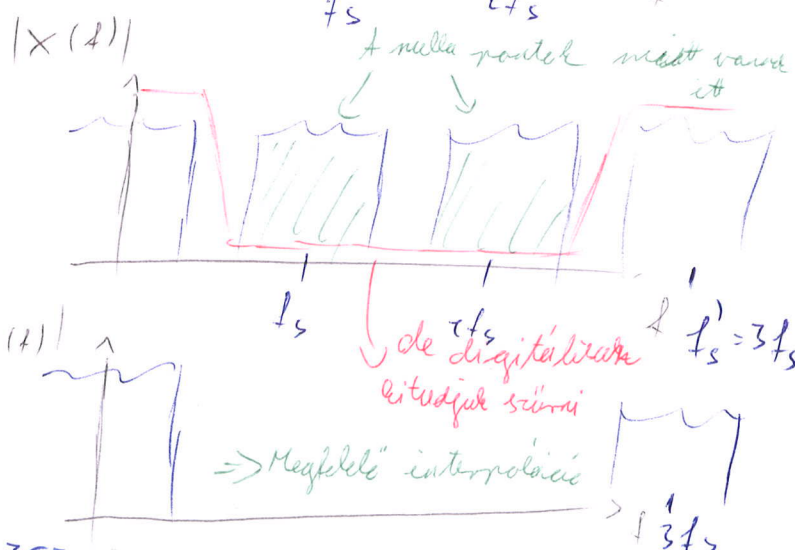 fs 2fs
|X(f)|
A nulla pontok miatt vannak
itt
fs 2fs f fs' = 3fs
de digitálisan
ki tudjuk szűrni
(f)|
=> Megfelelő interpoláció
f 3fs